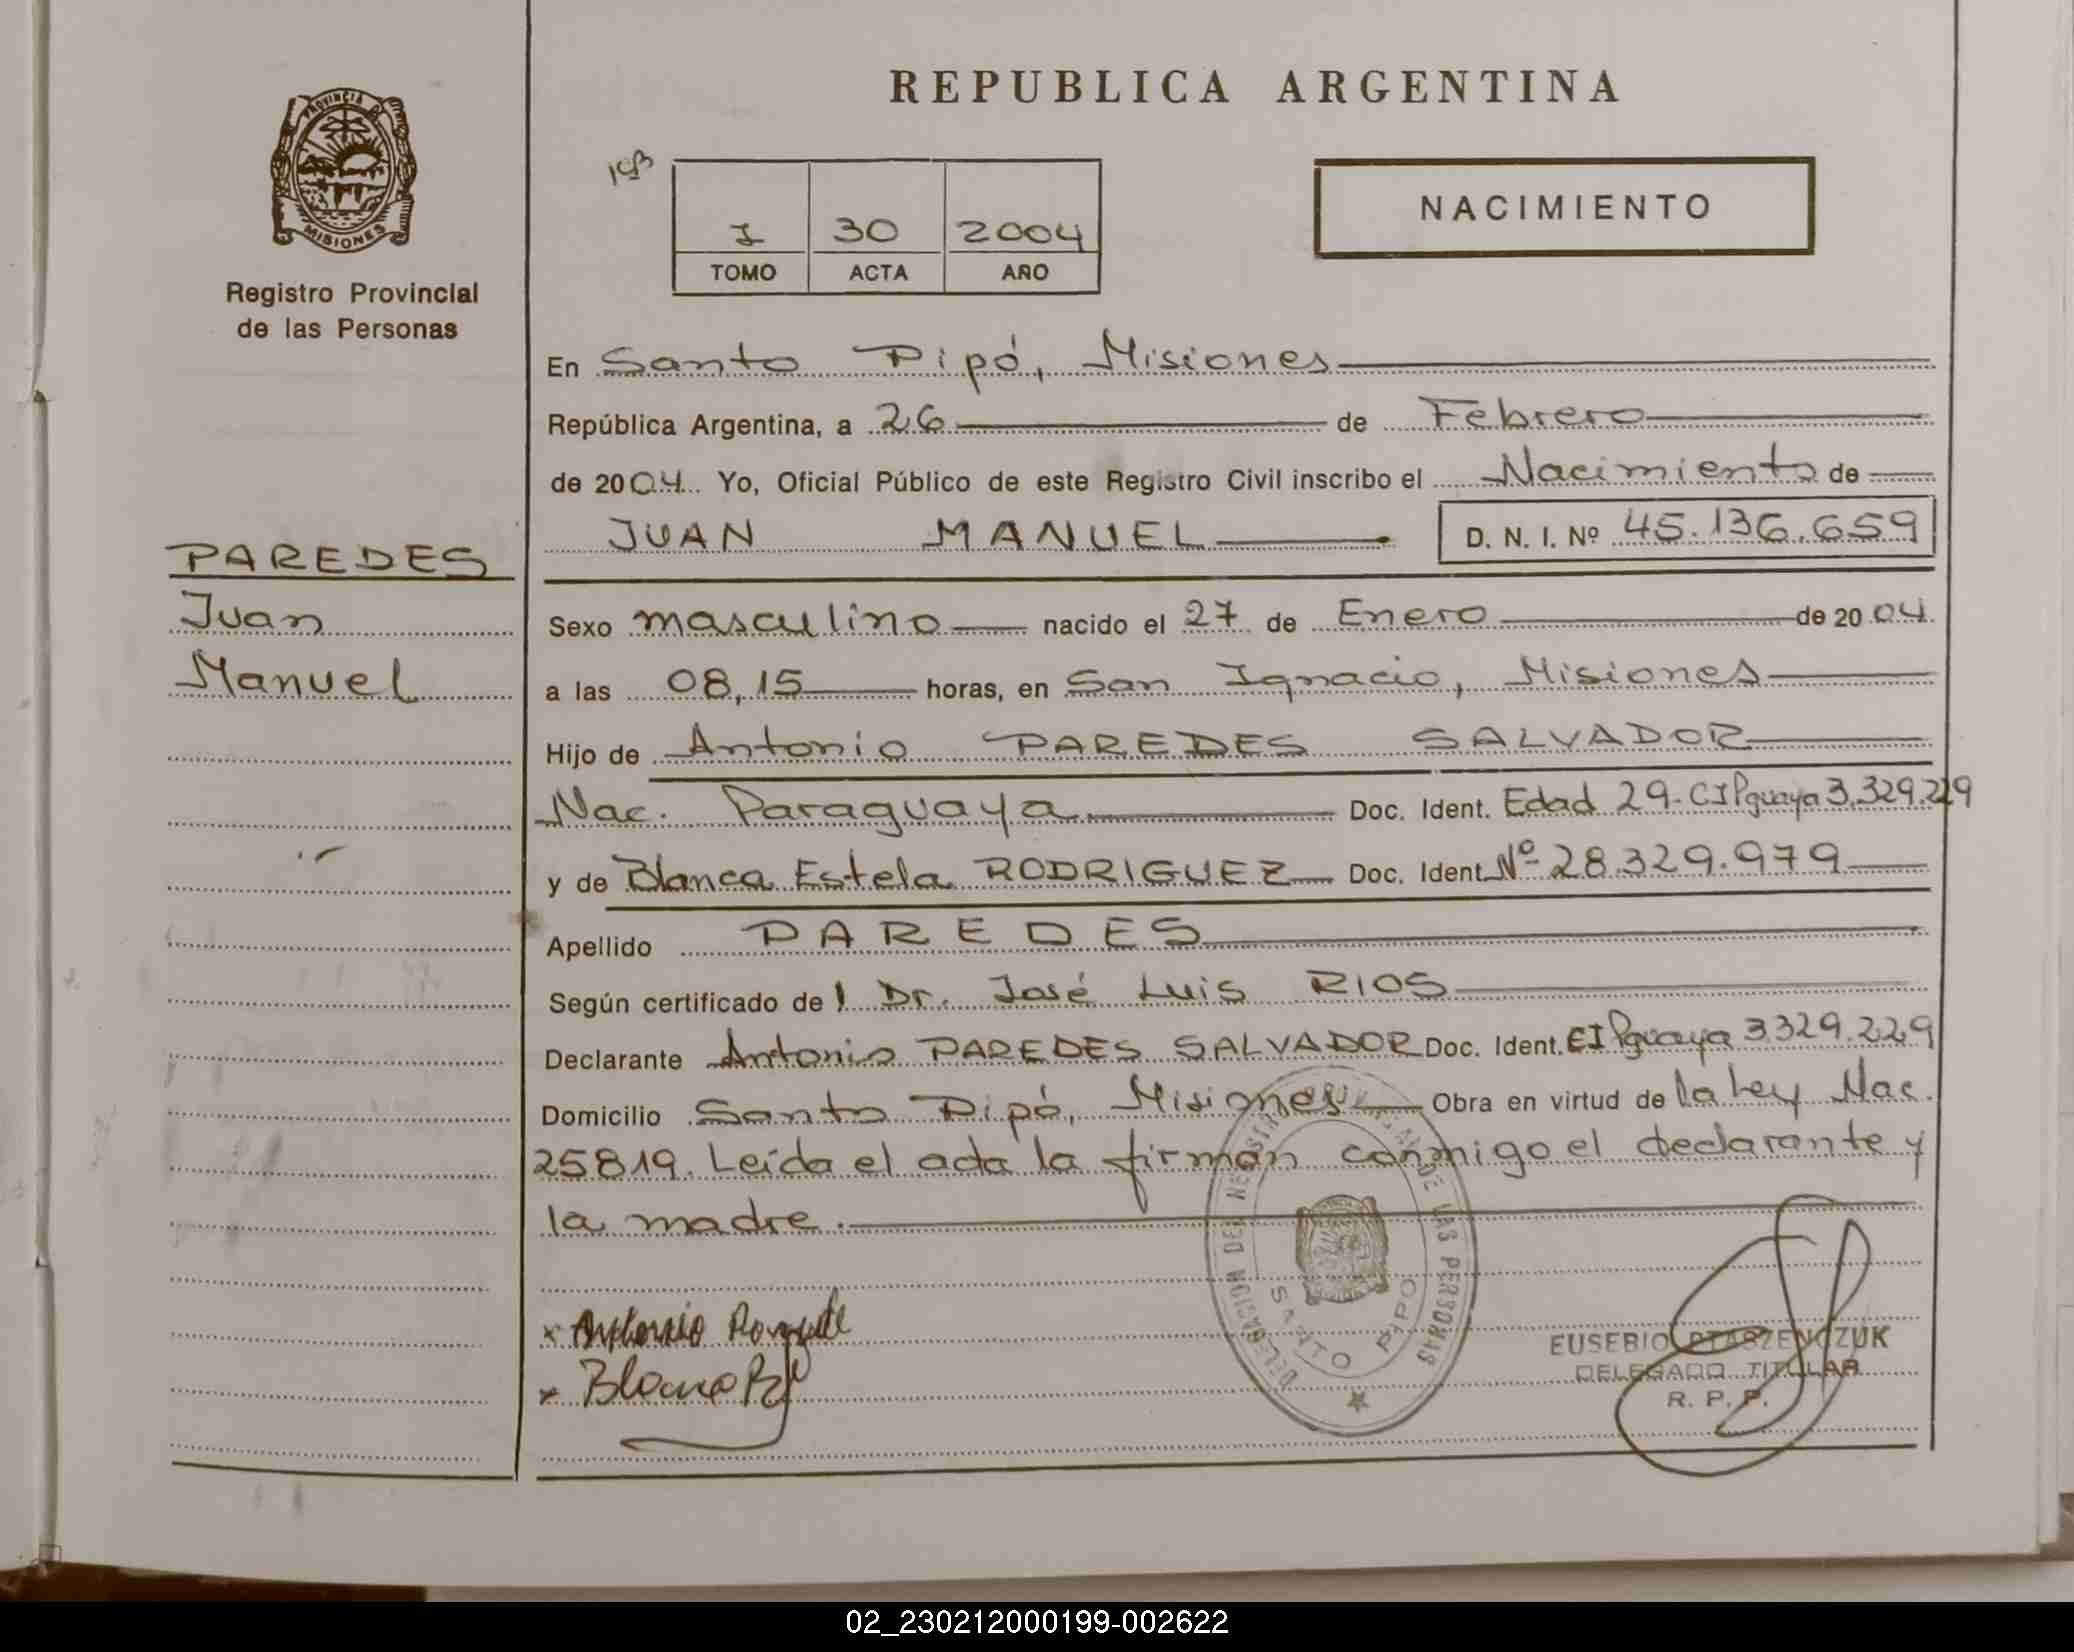 REPUBLICA ARGENTINA
PROVINCIA DE
MISIONES
Registro Provincial
de las Personas
I 30 2004
TOMO ACTA AÑO
NACIMIENTO
En Santo Pipó, Misiones
República Argentina, a 26 de Febrero
de 2004. Yo, Oficial Público de este Registro Civil inscribo el Nacimiento de
JUAN MANUEL D. N. I. Nº 45.136.659
PAREDES
Juan
Manuel
Sexo masculino nacido el 27 de Enero de 2004.
a las 08,15 horas, en San Ignacio, Misiones
Hijo de Antonio PAREDES SALVADOR
Nac. Paraguaya Doc. Ident. Edad 29- CI Pguaya 3.329.229
y de Blanca Estela RODRIGUEZ Doc. Ident. Nº 28.329.979
Apellido PAREDES
Según certificado de l Dr. José Luis RIOS
Declarante Antonio PAREDES SALVADOR Doc. Ident. CI Pguaya 3329.229
Domicilio Santo Pipó, Misiones Obra en virtud de la Ley Nac.
25819. Leída el acta la firman conmigo el declarante y
la madre.
DELEGACION DEL REGISTRO PROVINCIAL DE LAS PERSONAS
SANTO PIPO
x Antonio
x Blanca
EUSEBIO PTASZENCZUK
DELEGADO TITULAR
R. P. P.
02_230212000199-002622